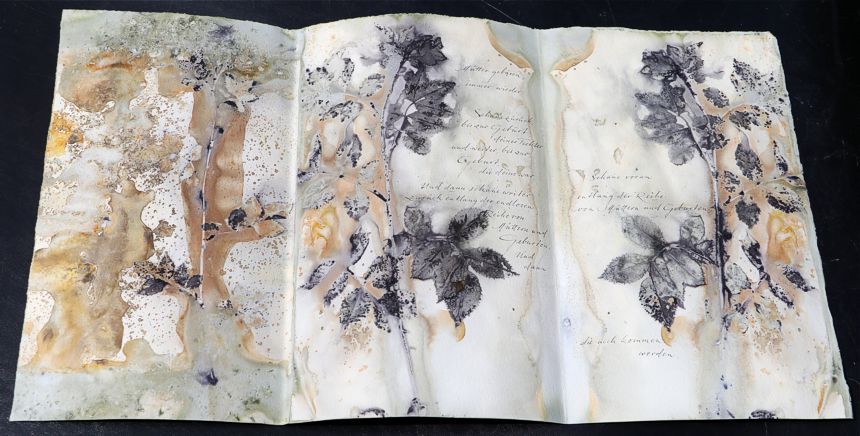 Mütter gebären
immer wieder
Schaue zurück
bis zur Geburt
deiner Mutter
und weiter bis zur
Geburt
die deine war
Und dann schaue weiter
zurück entlang der endlosen
Reihe von
Müttern und
Geburten.
Und
dann
Schaue voran
entlang der Reihe
von Müttern und Geburten
die noch kommen
werden